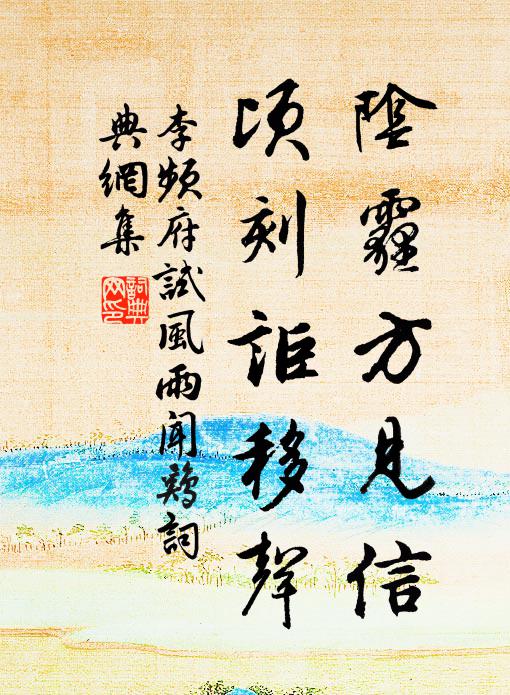 陰霾方見信
頃刻詎移聲
李頻府試風雨聞鶏詞
典網集
詞典
网印